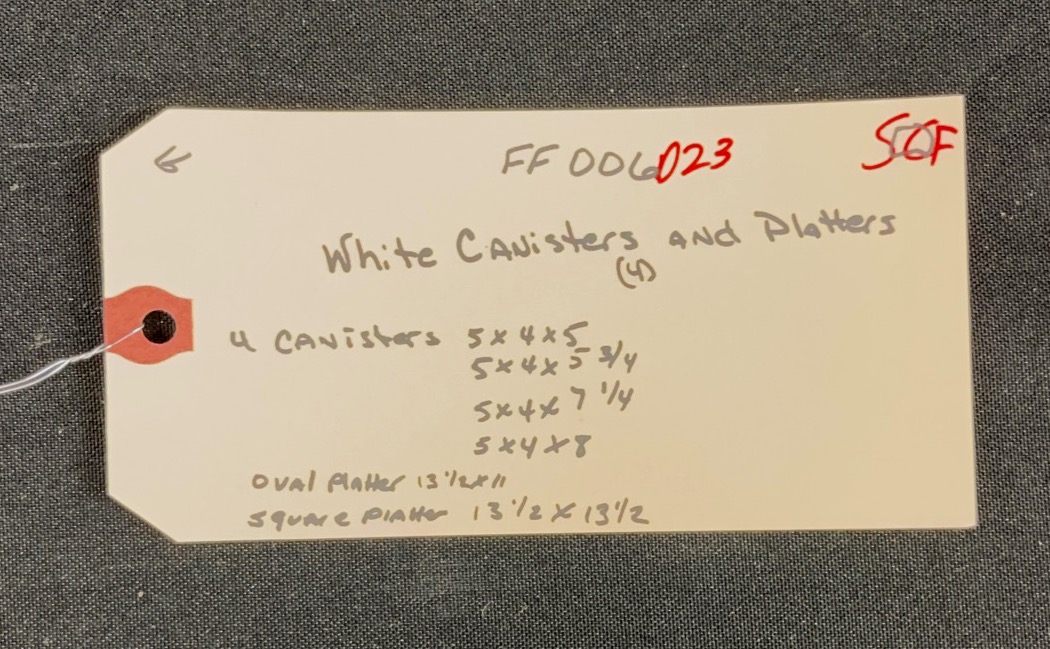 FF 006023 SCF
White Canisters and Platters
(4)
4 Canisters 5 x 4 x 5
5 x 4 x 5 3/4
5 x 4 x 7 1/4
5 x 4 x 8
Oval Platter 13 1/2 x 11
Square Platter 13 1/2 x 13 1/2